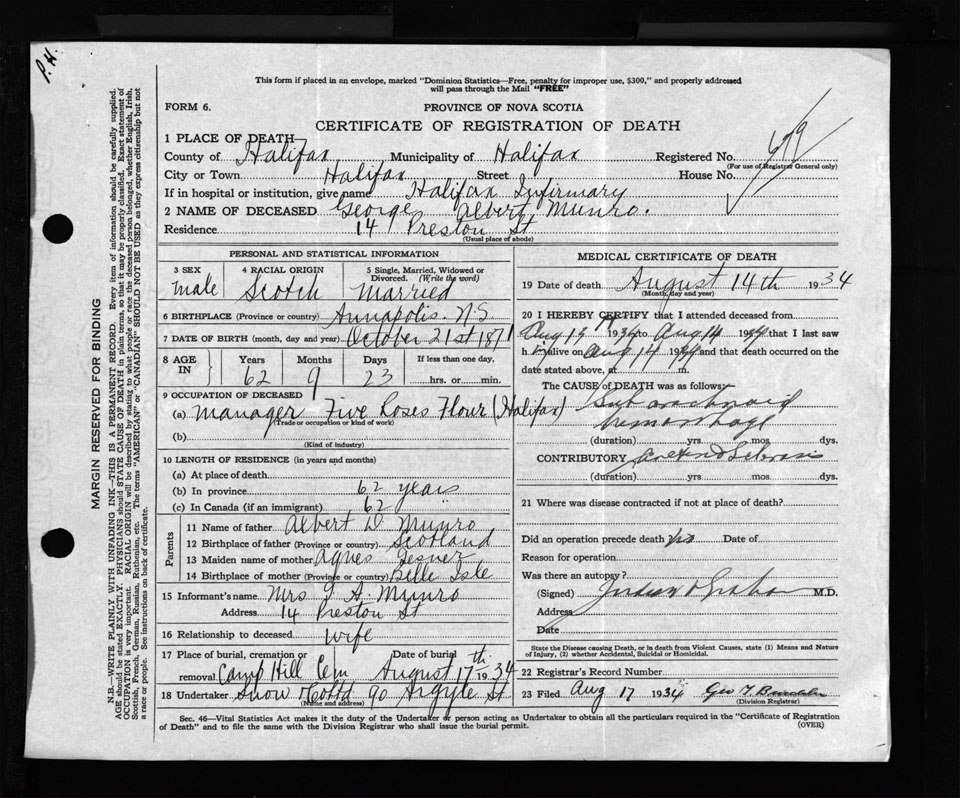 P.H.
This form if placed in an envelope, marked "Dominion Statistics—Free, penalty for improper use, $300," and properly addressed
will pass through the Mail "FREE"
FORM 6.
PROVINCE OF NOVA SCOTIA
CERTIFICATE OF REGISTRATION OF DEATH
1 PLACE OF DEATH
County of Halifax Municipality of Halifax Registered No.
(For use of Registrar General only)
City or Town Halifax Street House No.
If in hospital or institution, give name Halifax Infirmary
2 NAME OF DECEASED George Albert Munro.
Residence 14 Preston St
(Usual place of abode)
PERSONAL AND STATISTICAL INFORMATION
3 SEX 4 RACIAL ORIGIN 5 Single, Married, Widowed or
Divorced. (Write the word)
Male Scotch Married
6 BIRTHPLACE (Province or country) Annapolis. N.S.
7 DATE OF BIRTH (month, day and year) October 21st 1871
8 AGE IN Years Months Days If less than one day,
62 9 23 hrs. or min.
9 OCCUPATION OF DECEASED
(a) Manager Five Roses Flour (Halifax)
(Trade or occupation or kind of work)
(b)
(Kind of industry)
10 LENGTH OF RESIDENCE (in years and months)
(a) At place of death
(b) In province 62 years
(c) In Canada (if an immigrant) 62
Parents
11 Name of father Albert D Munro
12 Birthplace of father (Province or country) Scotland
13 Maiden name of mother Agnes Gesner
14 Birthplace of mother (Province or country) Belle Isle
15 Informant's name Mrs G A. Munro
Address 14 Preston St
16 Relationship to deceased wife
17 Place of burial, cremation or Date of burial
removal Camp Hill Cem August 17th 1934
18 Undertaker Snow & Co Ltd 90 Argyle St
(Name and address)
MEDICAL CERTIFICATE OF DEATH
19 Date of death August 14th 1934
(Month, day and year)
20 I HEREBY CERTIFY that I attended deceased from
Aug 13 1934 to Aug 14 1934 that I last saw
h im alive on Aug 14 1934 and that death occurred on the
date stated above, at m.
The CAUSE of DEATH was as follows:
Subarachnoid
hemorrhage
(duration) yrs. mos. dys.
CONTRIBUTORY
(duration) yrs. mos. dys.
21 Where was disease contracted if not at place of death?
Did an operation precede death? no Date of
Reason for operation
Was there an autopsy?
(Signed) M.D.
Address
Date
State the Disease causing Death, or in deaths from Violent Causes, state (1) Means and Nature
of Injury, (2) whether Accidental, Suicidal or Homicidal.
22 Registrar's Record Number
23 Filed Aug 17 1934 Geo
(Division Registrar)
Sec. 46—Vital Statistics Act makes it the duty of the Undertaker or person acting as Undertaker to obtain all the particulars required in the "Certificate of Registration
of Death" and to file the same with the Division Registrar who shall issue the burial permit. (OVER)
MARGIN RESERVED FOR BINDING
N.B.—WRITE PLAINLY WITH UNFADING INK—THIS IS A PERMANENT RECORD. Every item of information should be carefully supplied.
AGE should be stated EXACTLY. PHYSICIANS should STATE CAUSE OF DEATH in plain terms, so that it may be properly classified. Exact statement of
OCCUPATION is very important. RACIAL ORIGIN will be described by stating to what people or race the deceased person belonged, whether English, Irish,
Scottish, French, German, Russian, Ruthenian, etc. The terms "AMERICAN" or "CANADIAN" SHOULD NOT BE USED as they express citizenship but not
a race or people. See instructions on back of certificate.